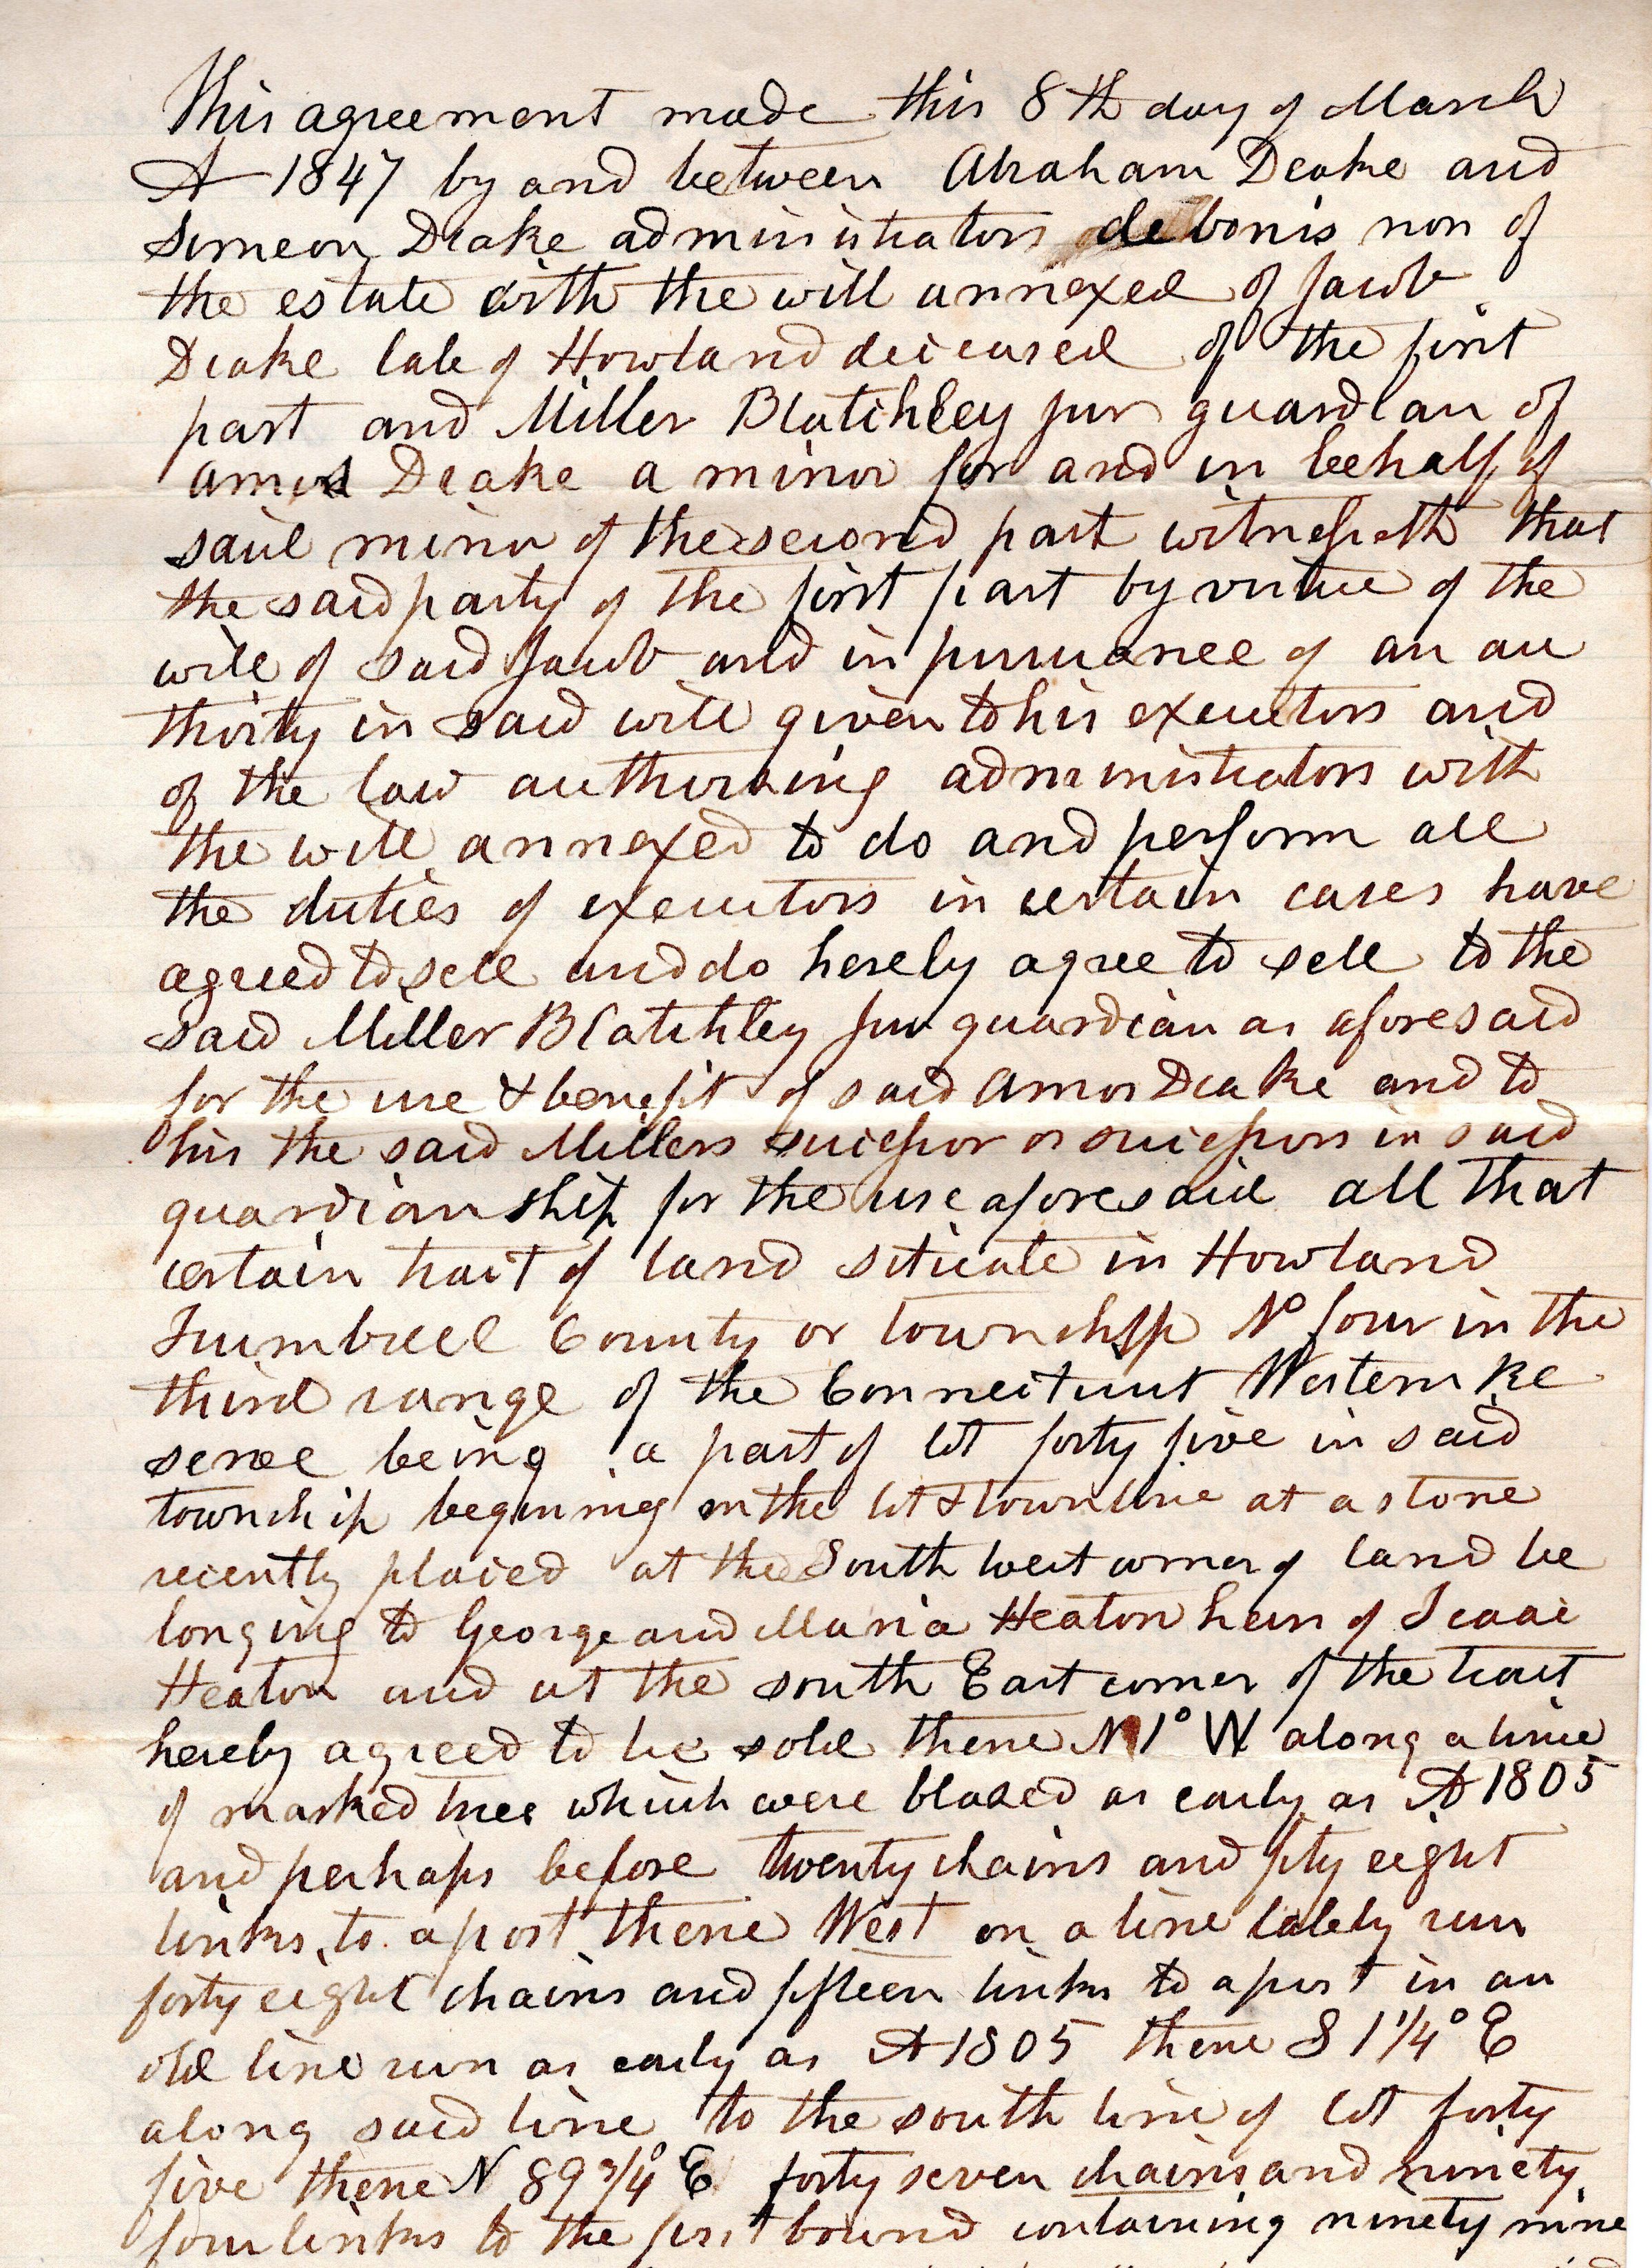 This agreement made this 8th day of March
AD 1847 by and between Abraham Drake and
Simeon Drake administrators de bonis non of
the estate with the will annexed of Jacob
Drake late of Howland deceased of the first
part and Miller Blatchley jun guardian of
Amos Drake a minor for and in behalf of
said minor of the second part witnesseth that
the said party of the first part by virtue of the
will of said Jacob and in pursuance of an au
thority in said will given to his executors and
of the law authorising administrators with
the will annexed to do and perform all
the duties of executors in certain cases have
agreed to sell and do hereby agree to sell to the
said Miller Blatchley jun guardian as aforesaid
for the use & benefit of said Amos Drake and to
his the said Millers successor or successors in said
guardianship for the use aforesaid all that
certain tract of land situate in Howland
Trumbull County or township No four in the
third range of the Connecticut Western Re
serve being a part of lot forty five in said
township beginning on the lot & town line at a stone
recently placed at the South west corner of land be
longing to George and Maria Heaton heirs of Isaac
Heaton and at the south East corner of the tract
hereby agreed to be sold thence N 1° W along a line
of marked trees which were blazed as early as AD 1805
and perhaps before twenty chains and fifty eight
links to a post thence West on a line lately run
forty eight chains and fifteen links to a post in an
old line run as early as AD 1805 thence S 1 1/4° E
along said line to the south line of lot forty
five thence N 89 3/4° E forty seven chains and ninety
four links to the first bound containing ninety nine